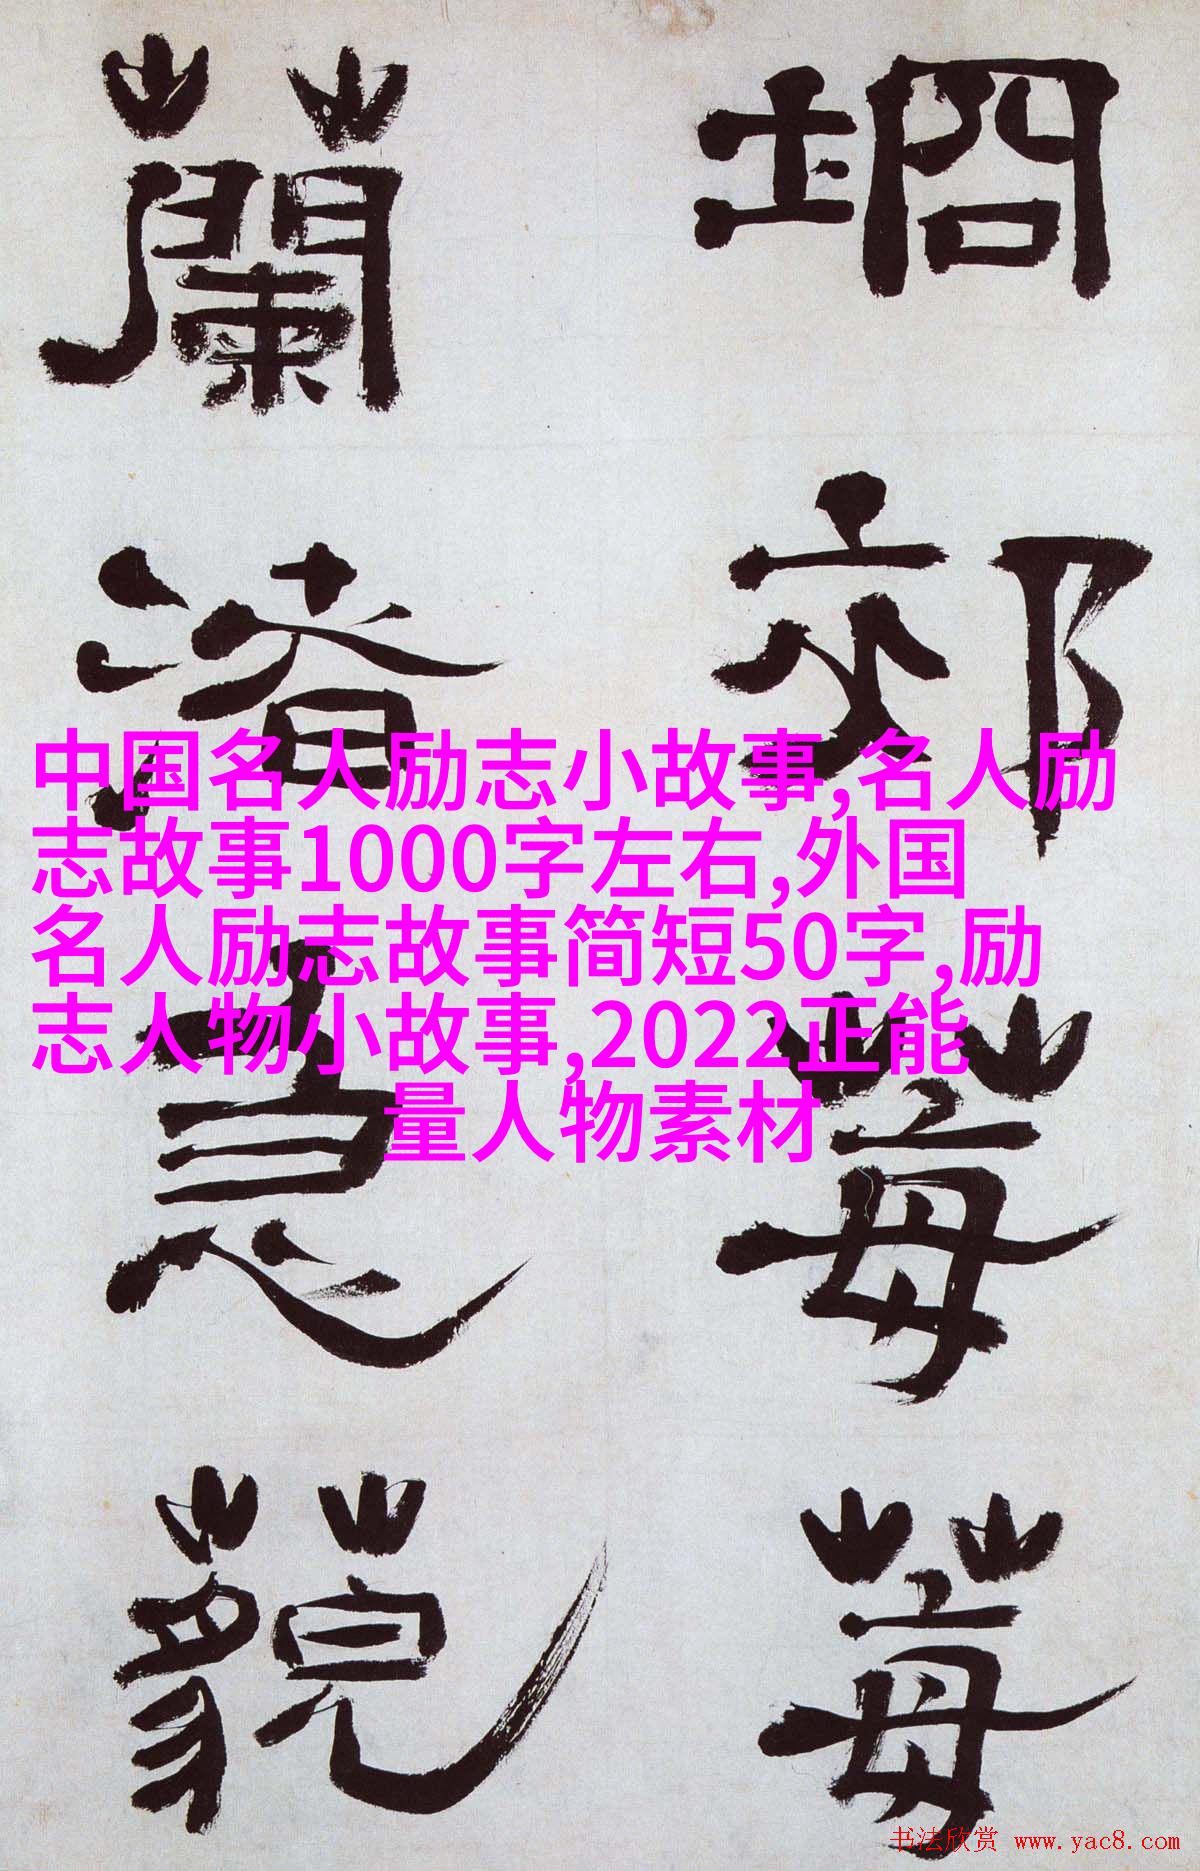 中国名人励志小故事,名人励
志故事1000字左右,外国
名人励志故事简短50字,励
志人物小故事,2022正能
量人物素材
郊莓莓
蘭渚急藐
书法欣赏 www.yac8.com